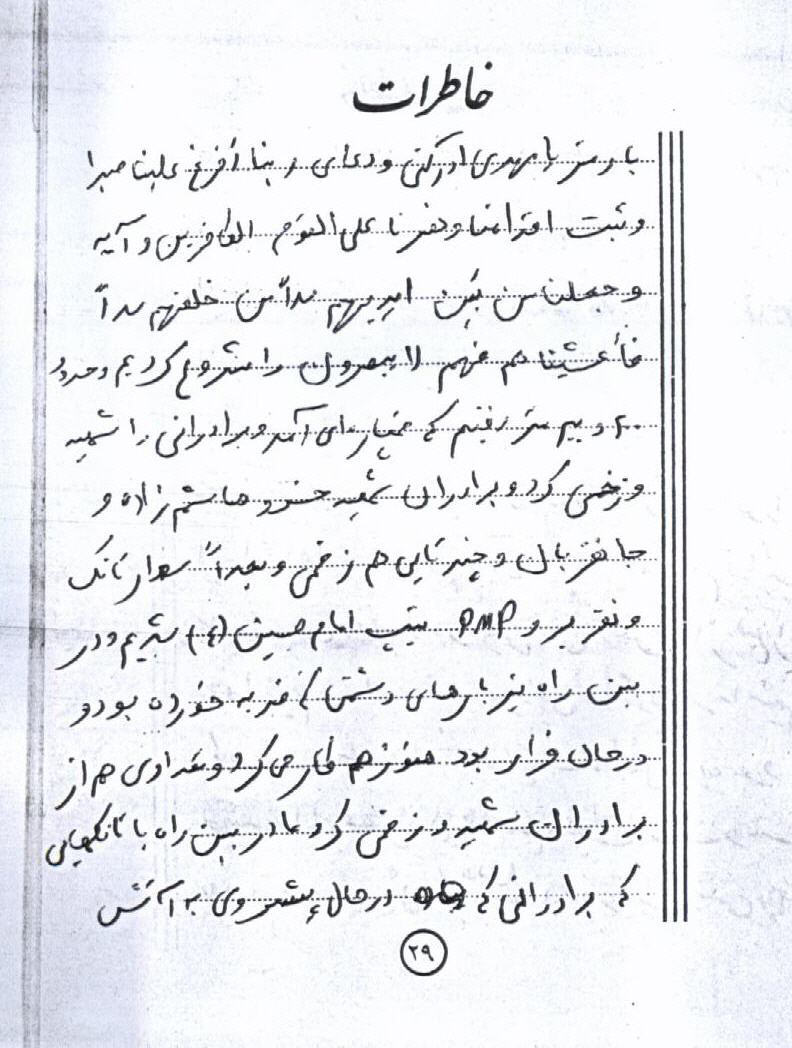 خاطرات
با رمز یا مهدی ادرکنی و دعای ربنا أفرغ علینا صبرا
و ثبت اقدامنا و نصرنا علی القوم الکافرین و آیه
و جعلنا من بین ایدیهم سداً من خلفهم سداً
فأغشینا هم فهم لا یبصرون را شروع کردیم و حدود
۲۰۰ متر رفتیم که خمپاره‌ای آمد و برادرانی را شهید
و زخمی کرد و برادران شهید خسرو هاشم زاده و
جانقربال و چند تایی هم زخمی و بعداً سوار تانک
و نفربر و PMP تیپ امام حسین (ع) شدیم و در
بین راه نیز با
در حال فرار بود هنوز هم کار می کرد و تعدادی هم از
برادران شهید و زخمی کرد ما در بین راه با تانکهایی
که برادرانی که در حال پیشروی به آتش
۲۹